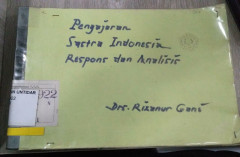 Pengajaran
Sastra Indonesia
Respons dan Analisis
Drs. Rizanur Gani
UNTIDAR
922